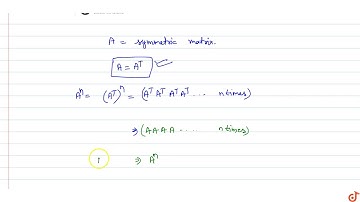 A = symmetric matrix.
A = Aᵀ
Aⁿ = (Aᵀ)ⁿ = (Aᵀ Aᵀ Aᵀ Aᵀ ... n times)
⇒ (A A A A ..... n times)
⇒ Aⁿ